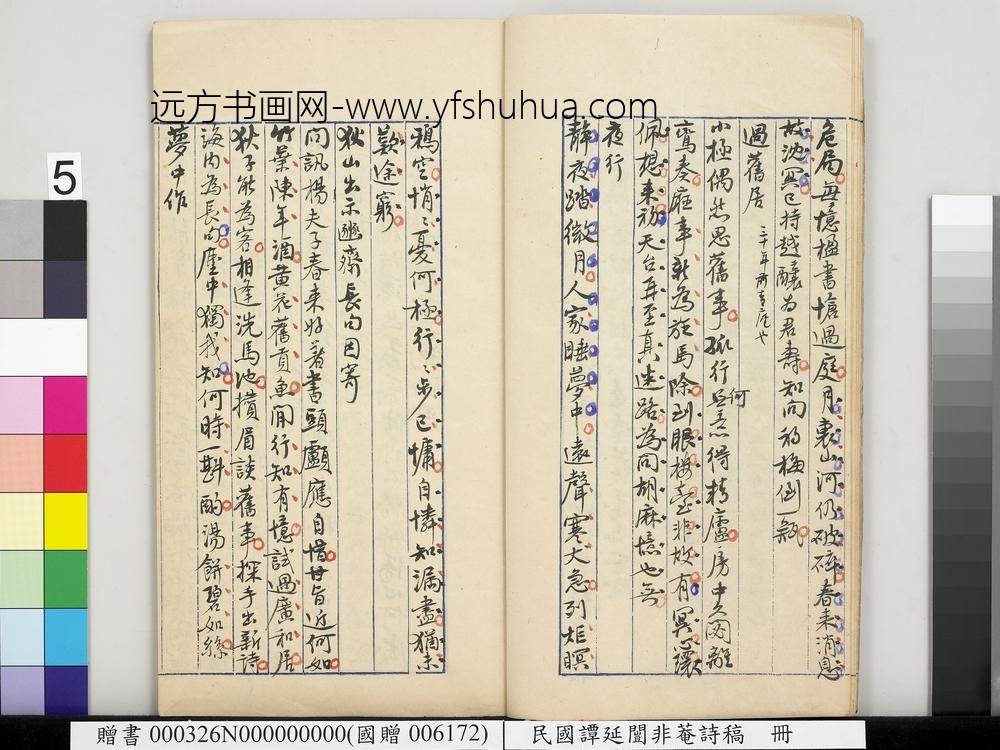 远方书画网-www.yfshuhua.com
5
危局每憶楹書愴過庭月裏山河仍破碎春來消息
持越釀為君壽知向梅倒瓶
過舊居
小極偶然思舊事孤行何得精廬房中久
為馬除到眼樓臺非故有冥心
佩想來天台再至真迷路為問胡麻憶也無
夜行
靜夜踏微月人家睡夢中遠聲寒犬急列炬瞑
鴉空悄悄憂何極行行步已慵自憐知漏盡猶未
歎途窮
狄山出示幽齋長句因寄
問訊楊夫子春來好著書頭顱應自惜甘旨近何如
竹葉陳年酒黃花舊貢魚閒行知有憶試過廣和居
狄子能為客相逢洗馬池攢眉談舊事探手出新詩
海內為長句塵中獨我知何時一斟酌湯餅碧如絲
夢中作
贈書 000326N000000000(國贈 006172)
民國譚延闓非菴詩稿 冊